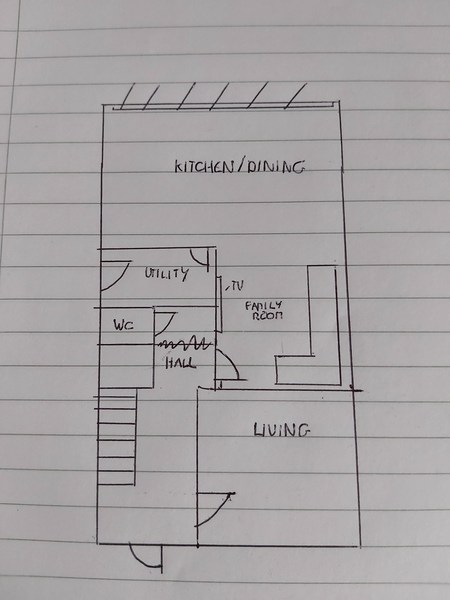 KITCHEN/DINING
UTILITY
TV
FAMILY
ROOM
WC
HALL
LIVING